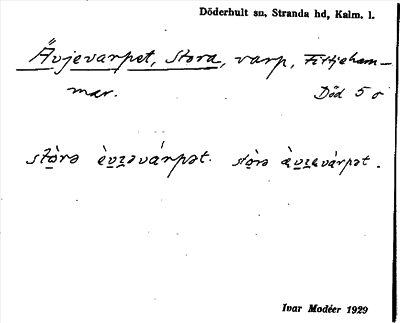 Döderhult sn, Stranda hd, Kalm. l.
Ävjevarpet, Stora, varp, Fittjeham-
mar. Död 5 o
stòrə èvzəvárpət. stòrə àvzəvárpət.
Ivar Modéer 1929